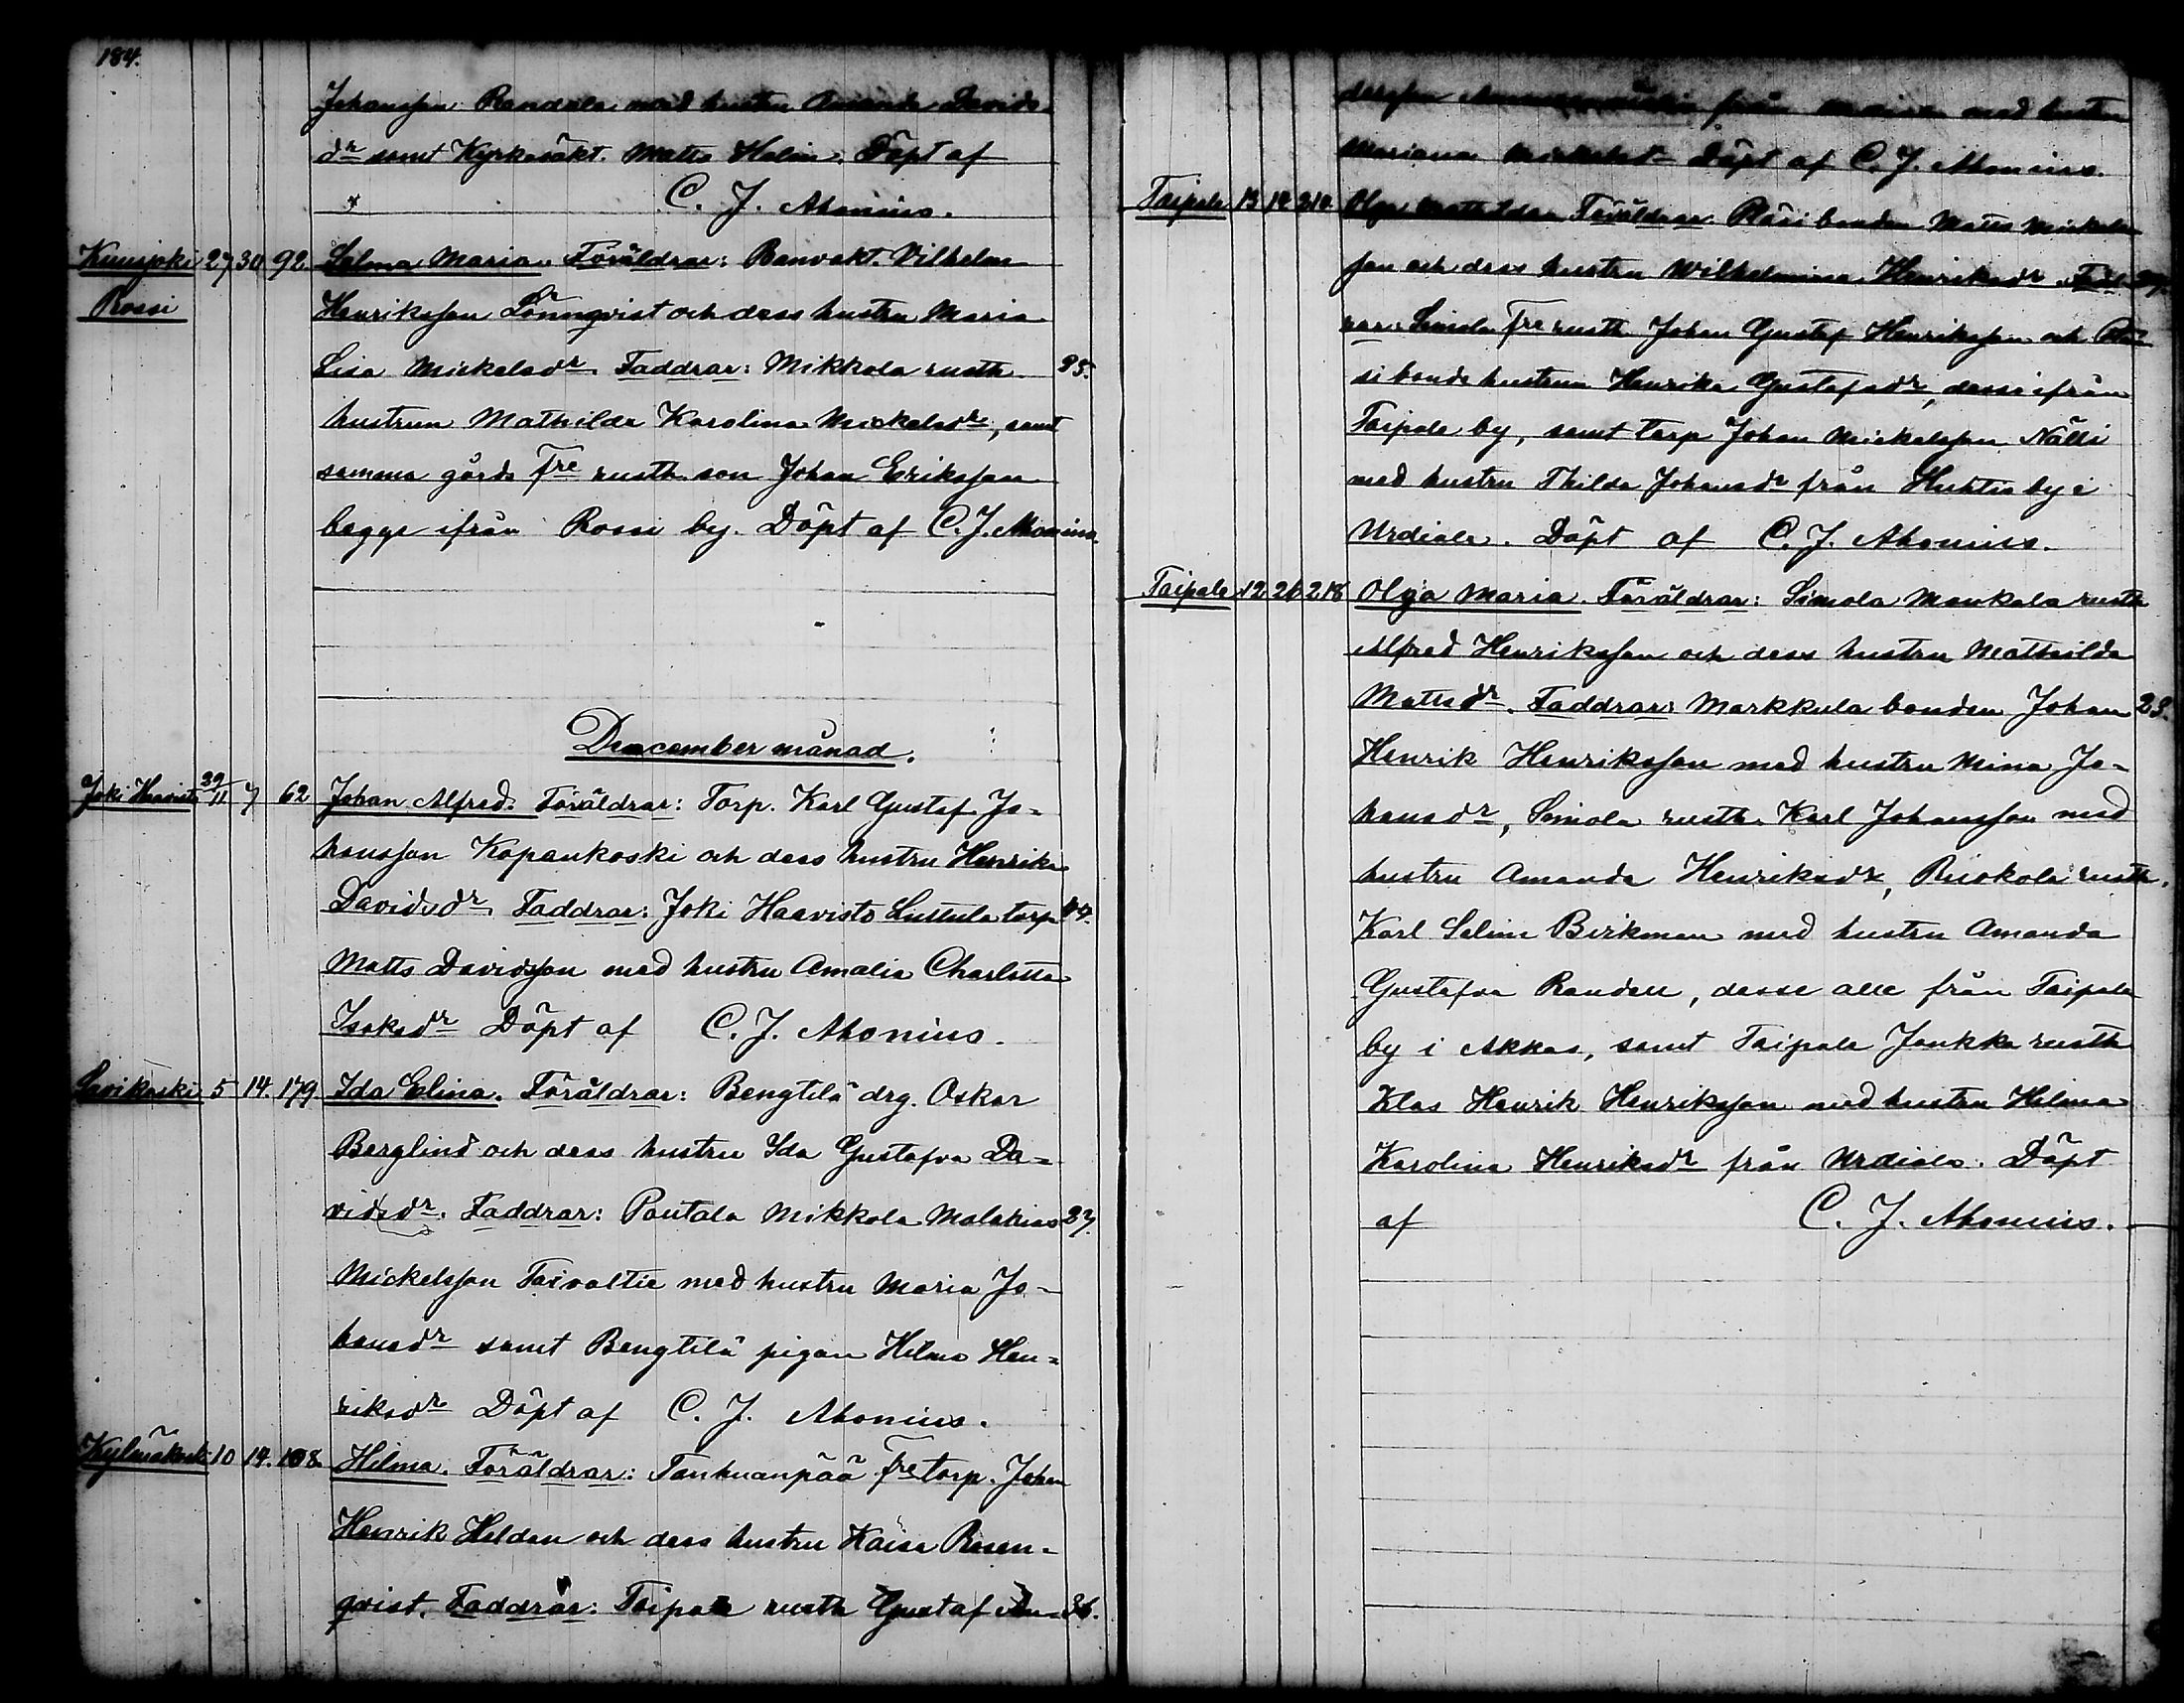 184.
Johansson Randala med hustru Amanda Davids-
dr samt Kyrkovakt. Matts Holm. Döpt af
C. J. Ahonius.
Kuusjoki 27 30 92 Selma Maria. Föräldrar: Banvakt. Vilhelm
Rossi Henriksson Lönnqvist och dess hustru Maria
Lisa Mickelsdr. Faddrar: Mikkola rusth. 35.
hustrun Mathilda Karolina Mickelsdr, samt
samma gårds Fre rusth. son Johan Eriksson
begge ifrån Rossi by. Döpt af C. J. Ahonius.
December månad.
Joki Haavisto 29/11 7 62 Johan Alfred. Föräldrar: Torp. Karl Gustaf Jo-
hansson Kopankoski och dess hustru Henrika
Davidsdr. Faddrar: Joki Haavisto torp 44.
Matts Davidsson med hustru Amalia Charlotta
Isaksdr Döpt af C. J. Ahonius.
Savikoski 5 14. 179. Ida Elina. Föräldrar: Bengtilä drg. Oskar
Berglind och dess hustru Ida Gustafva Da-
vidsdr. Faddrar: Pantala Mikkola Malakias 27.
Mickelsson Taivaltie med hustru Maria Jo-
hansdr samt Bengtilä pigan Hilma Hen-
riksdr Döpt af C. J. Ahonius.
Kylmäkoski 10 14. 108. Hilma. Föräldrar: Tanhuanpää Fre torp. Johan
Henrik Helden och dess hustru Kaisa Rosen-
qvist. Faddrar: Taipale rusth Gustaf An- 36.
från med hustru
Mariana Döpt af C. J. Ahonius.
Taipale 13 14 214 Olga Mathilda. Föräldrar: Räsi bonden Matts Mickels-
son och dess hustru Wilhelmina Henriksdr. Fad- 27.
rar: Simola Fre rusth. Johan Gustaf Henriksson och Rä-
si bonde hustrun Henrika Gustafsdr, desse ifrån
Taipale by, samt torp Johan Mickelsson Nälli
med hustru Thilda Johansdr från Huhtis by i
Urdiala. Döpt af C. J. Ahonius.
Taipale 12 26 218 Olga Maria. Föräldrar: Simola Maukala rusth
Alfred Henriksson och dess hustru Mathilda
Mattsdr. Faddrar: Markkula bonden Johan 23.
Henrik Henriksson med hustru Mina Jo-
hansdr, Simola rusth. Karl Johansson med
hustru Amanda Henriksdr, Ruokola rusth.
Karl Selim Birkman med hustru Amanda
Gustafva Randell, desse alle från Taipale
by i Akkas, samt Taipale Jaukka rusth
Klas Henrik Henriksson med hustru Hilma
Karolina Henriksdr från Urdiala. Döpt
af C. J. Ahonius.